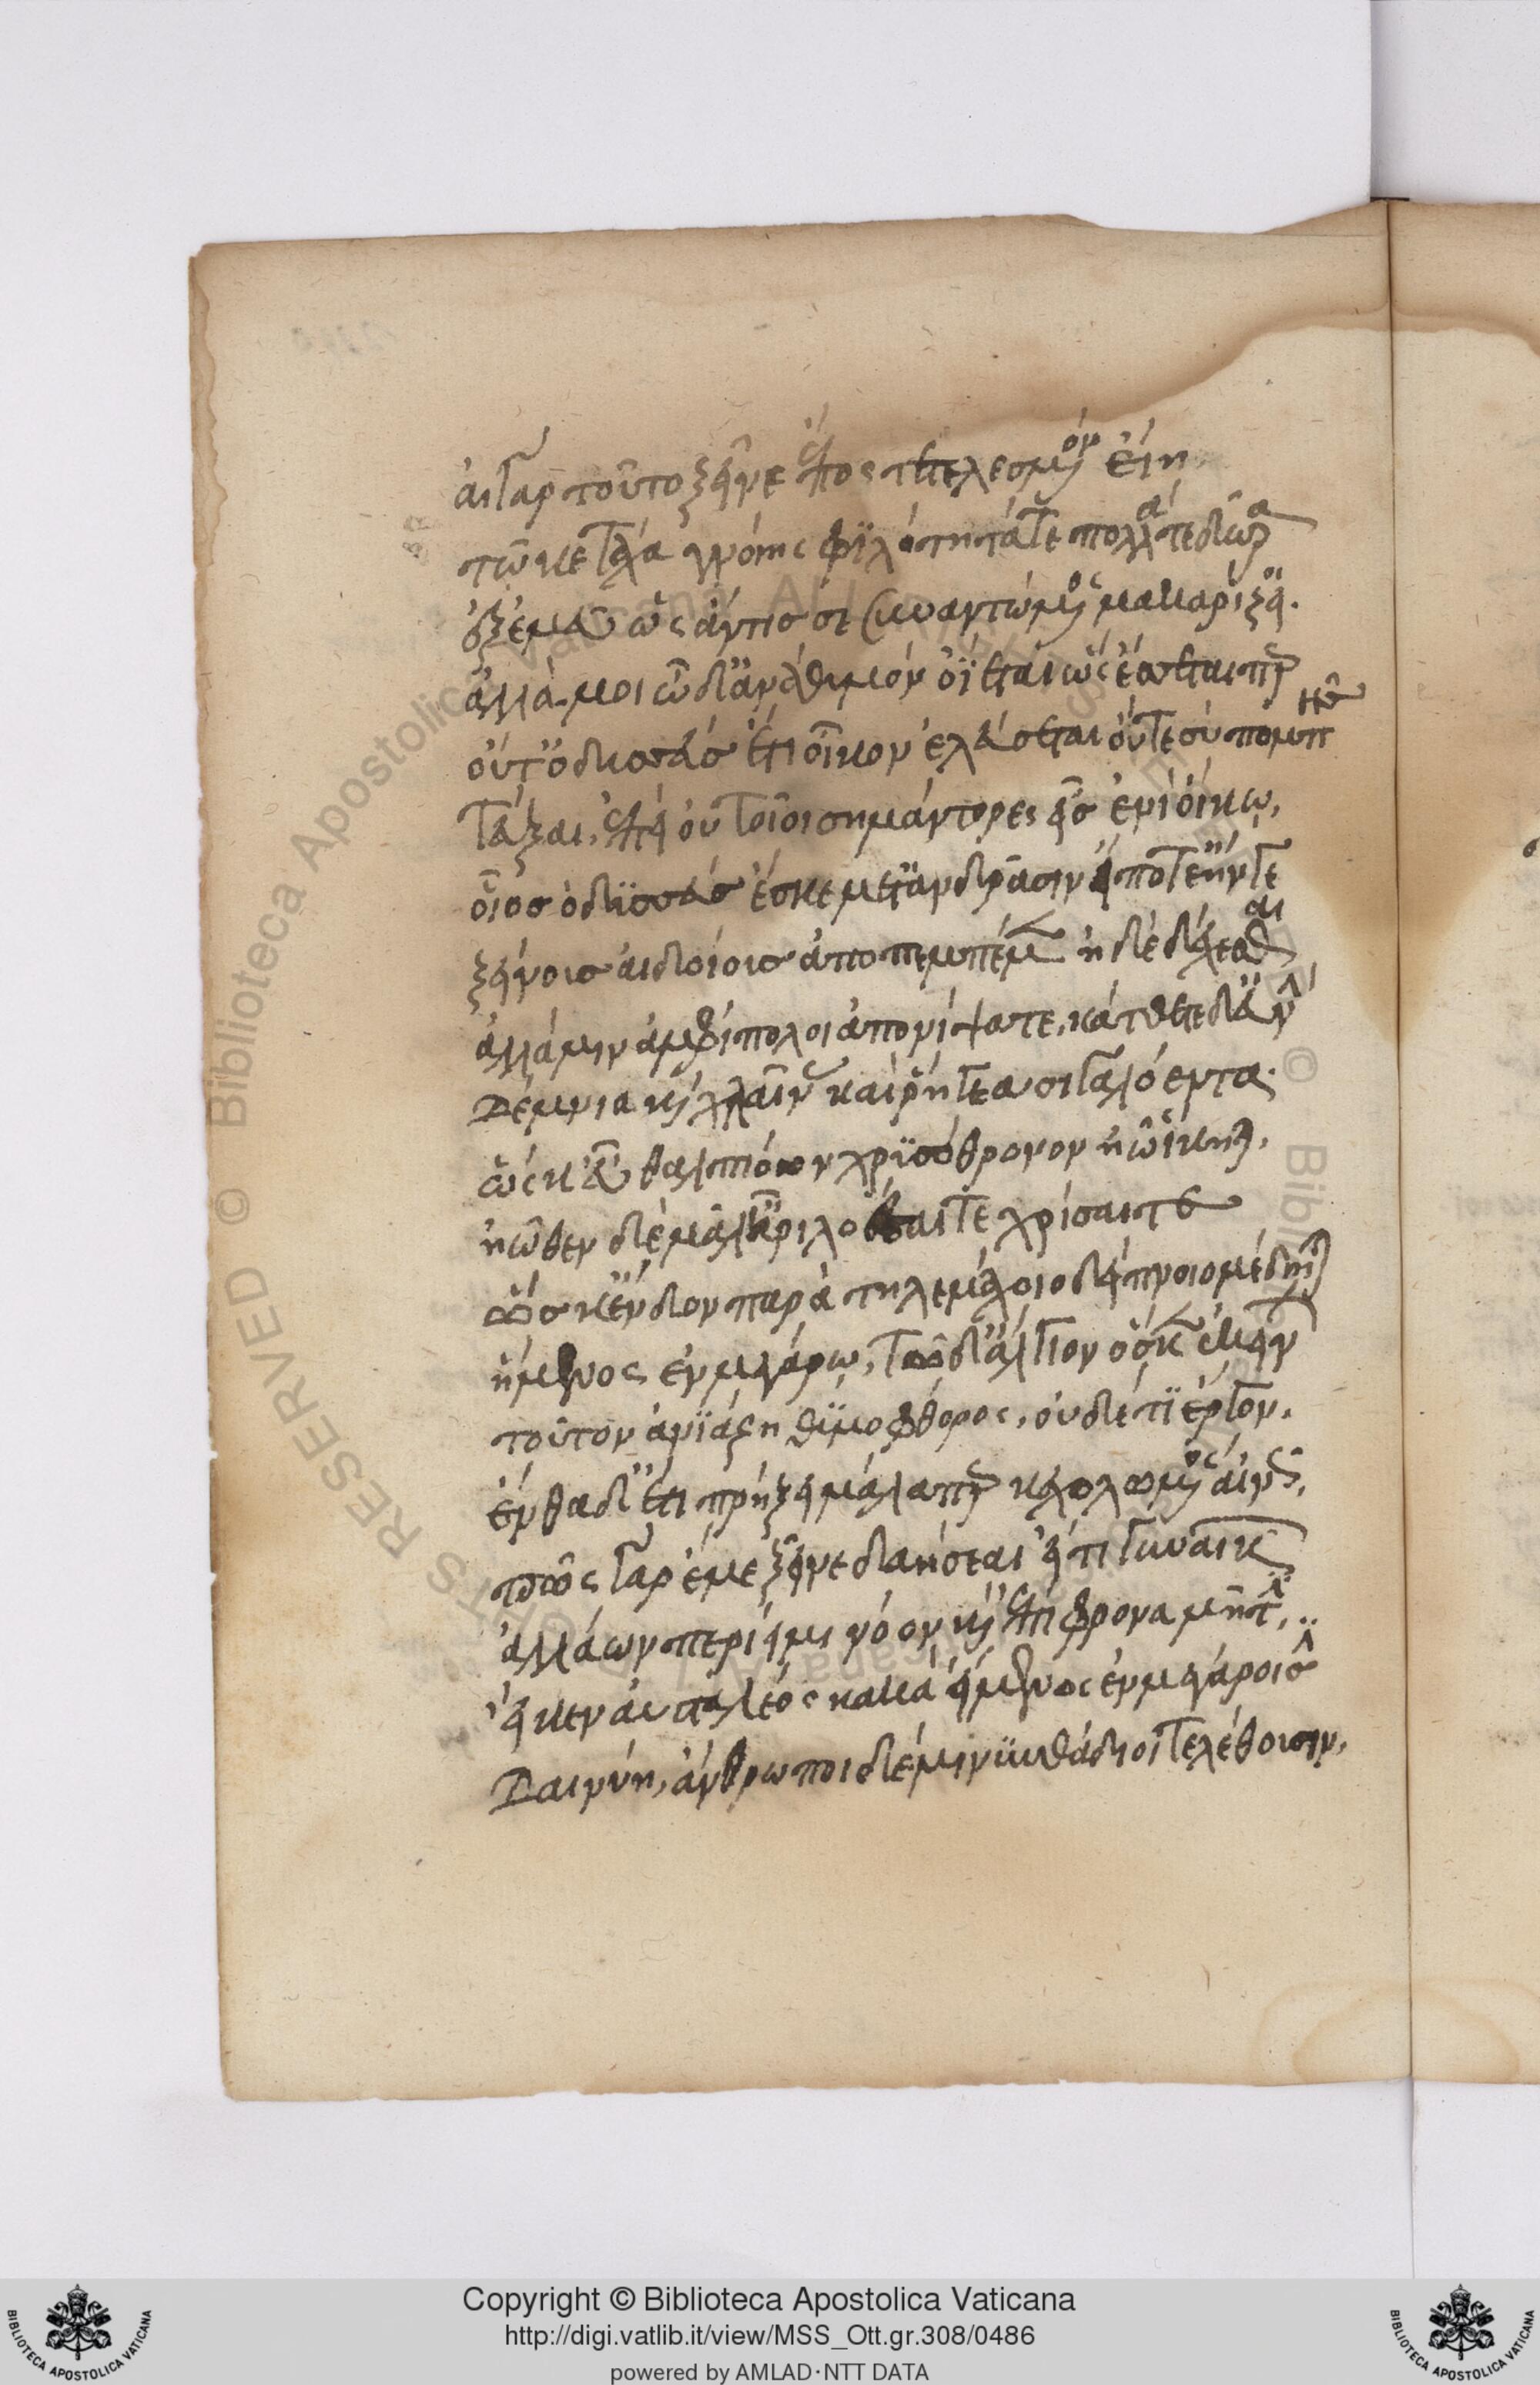 αἲ γὰρ τοῦτο ξεῖνε ἔπος τετελεσμένον εἴη
τῶ κε τάχα γνοίης φιλότητά τε πολλά τε δῶρα
ἐξ ἐμεῦ ὥς ἄν τίς σε συναντώμενος μακαρίζει.
ἀλλά μοι ὧδ' ἀνὰ θυμὸν ὀΐεται ὡς ἔσεταί περ
οὔτ' ὀδυσεὺς ἔτι οἶκον ἐλεύσεται οὔτε σὺ πομπῆς
τεύξαι, ἐπεὶ οὐ τοῖοι σημάντορες εἰσ' ἐνὶ οἴκω,
οἷος ὀδυσσεὺς ἔσκε μετ' ἀνδράσιν εἴ ποτ' ἔην γε
ξείνους αἰδοίους ἀποπεμπέμεν ἠδὲ δέχεσθαι
ἀλλά μιν ἀμφίπολοι ἀπονίψατε, κάτθετε δ' εὐνὴν
δέμνια καὶ χλαίνας καὶ ῥήγεα σιγαλόεντα.
ὥς κ' εὖ θαλπιόων χρυσόθρονον ἠῶ ἵκηται.
ἠῶθεν δὲ μάλ' ἦρι λοέσσαι τε χρίσαι τε
ὥς κ' ἔνδον παρὰ τηλεμάχοιο δείπνοιο μέδηται
ἥμενος ἐν μεγάρω, τῷ δ' ἄλγιον ὅς κεν ἐκείνων
τοῦτον ἀνιάζη θυμοφθόρος, οὐδέ τι ἔργον.
ἐνθάδ' ἔτι πρήξει μάλα περ κεχολωμένος αἰνῶς,
πῶς γὰρ ἐμε ξεῖνε δαήσεαι εἴ τι γυναικῶν
ἀλλάων περίειμι νόον καὶ ἐπίφρονα μῆτιν,
εἴ κεν ἀυσταλέος κακὰ εἱμένος ἐν μεγάροισι
δαινύη, ἄνθρωποι δὲ μινυνθάδιοι τελέθουσιν,
Copyright © Biblioteca Apostolica Vaticana
http://digi.vatlib.it/view/MSS_Ott.gr.308/0486
powered by AMLAD·NTT DATA